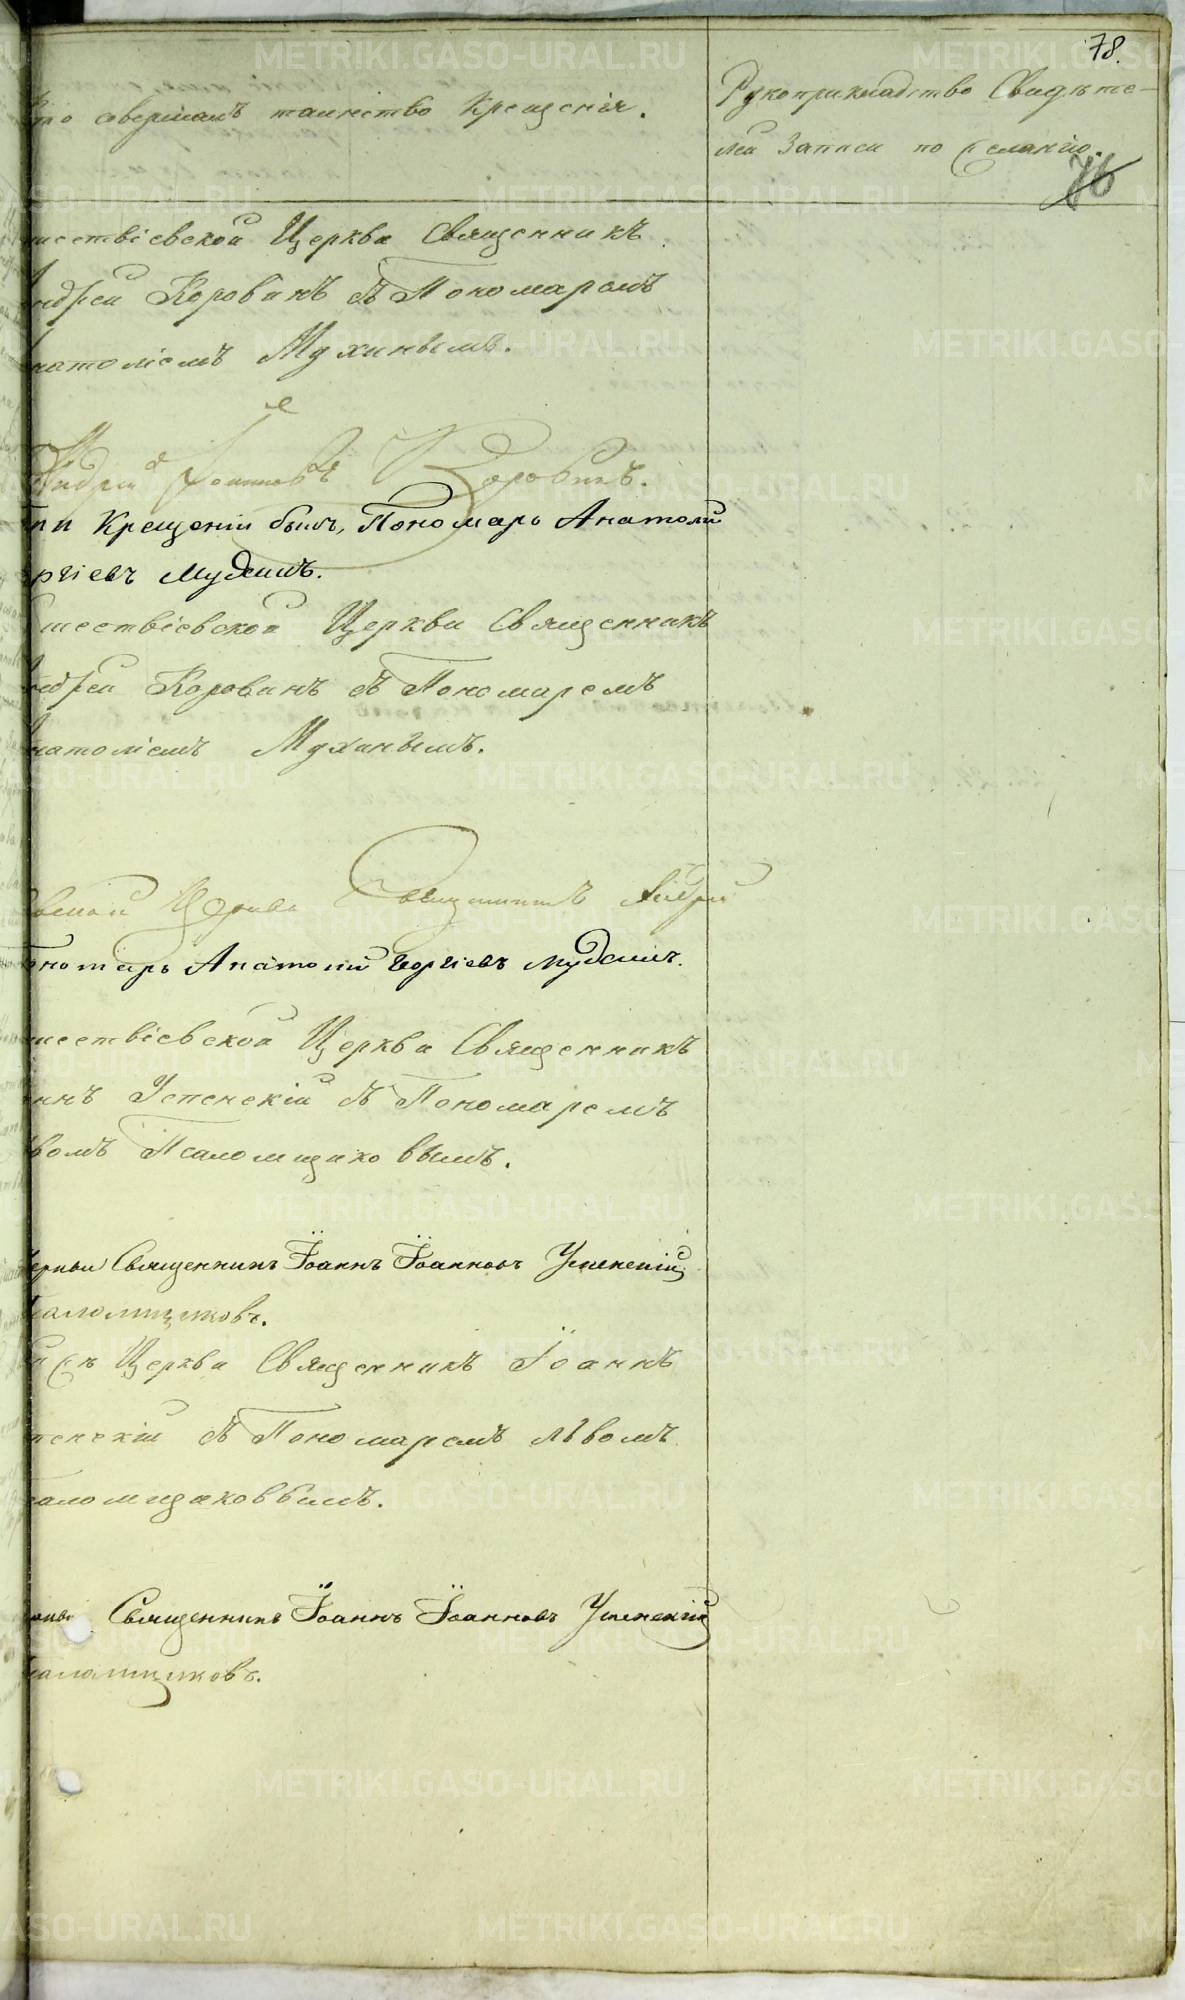 78.
то совершалъ таинство Крещенія.
Рукоприкладство Свидѣте-
лей Записи по желанію.
76
шествіевской Церкви Священникъ
ндрей Коровинъ съ Пономаремъ
натоліемъ Мухинымъ.
Андрей Коровинъ.
ри Крещеніи былъ, Пономарь Анатолій
ргіевъ Мухинъ.
шествіевской Церкви Священникъ
ндрей Коровинъ съ Пономаремъ
натоліемъ Мухинымъ.
Церкви Священникъ Андрей
ономарь Анатолій Георгіевъ Мухинъ.
шествіевской Церкви Священникъ
аннъ Успенскій съ Пономаремъ
вомъ Псаломщиковымъ.
Церкви Священникъ Іоаннъ Іоанновъ Успенскій
саломщиковъ.
Церкви Священникъ Іоаннъ
пенскій съ Пономаремъ Львомъ
саломщиковымъ.
Священникъ Іоаннъ Іоанновъ Успенскій
саломщиковъ.
METRIKI.GASO-URAL.RU